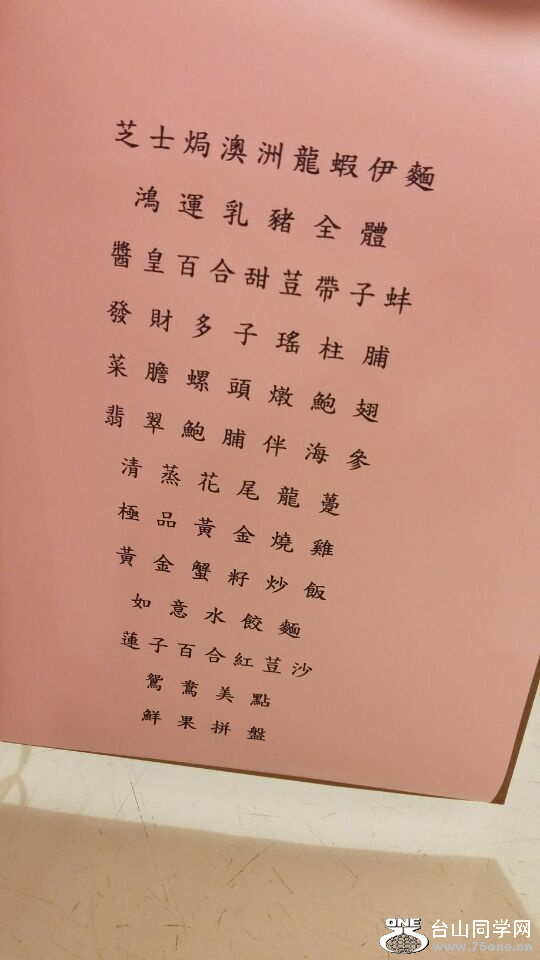 芝士焗澳洲龍蝦伊麵
鴻運乳豬全體
醬皇百合甜荳帶子蚌
發財多子瑤柱脯
菜膽螺頭燉鮑翅
翡翠鮑脯伴海參
清蒸花尾龍躉
極品黃金燒雞
黃金蟹籽炒飯
如意水餃麵
蓮子百合紅荳沙
鴛鴦美點
鮮果拼盤
ONE 台山同学网
www.75one.cn